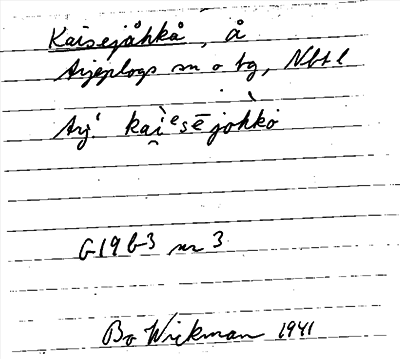 Kaisejåhkå, å
Arjeplogs sn o tg, Nbt l
Arj. kai̯ᵉsējohkò
G19b3 nr 3
Bo Wickman 1941